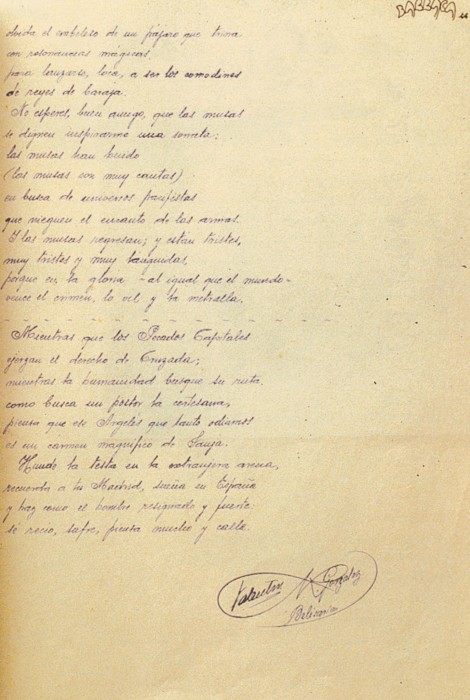 BARRACA
olvida el embeleso de un pájaro que trina
con resonancias mágicas,
para lanzarse, loca, a ser los comodines
de reyes de baraja.
No esperes, buen amigo, que las musas
se dignen inspirarme una sonata;
las musas han huido
(las musas son muy cautas)
en busca de universos panfistas
que nieguen el encanto de las armas.
Y las musas regresan; y están tristes,
muy tristes y muy lánguidas,
porque en la gloria -al igual que el mundo-
vence el crimen, lo vil y la metralla.
Mientras que los Pecados Capitales
ejerzan el derecho de Cruzada;
mientras la humanidad busque su ruta,
como busca un postor la cortesana,
piensa que ese Angelés que tanto
es un carmen magnífico de
Hunde la testa en la extranjera arena,
recuerda a tu Madrid, sueña en España
y haz como el hombre resignado y fuerte:
sé recio, sufre, piensa mucho y calla.
Valentín González